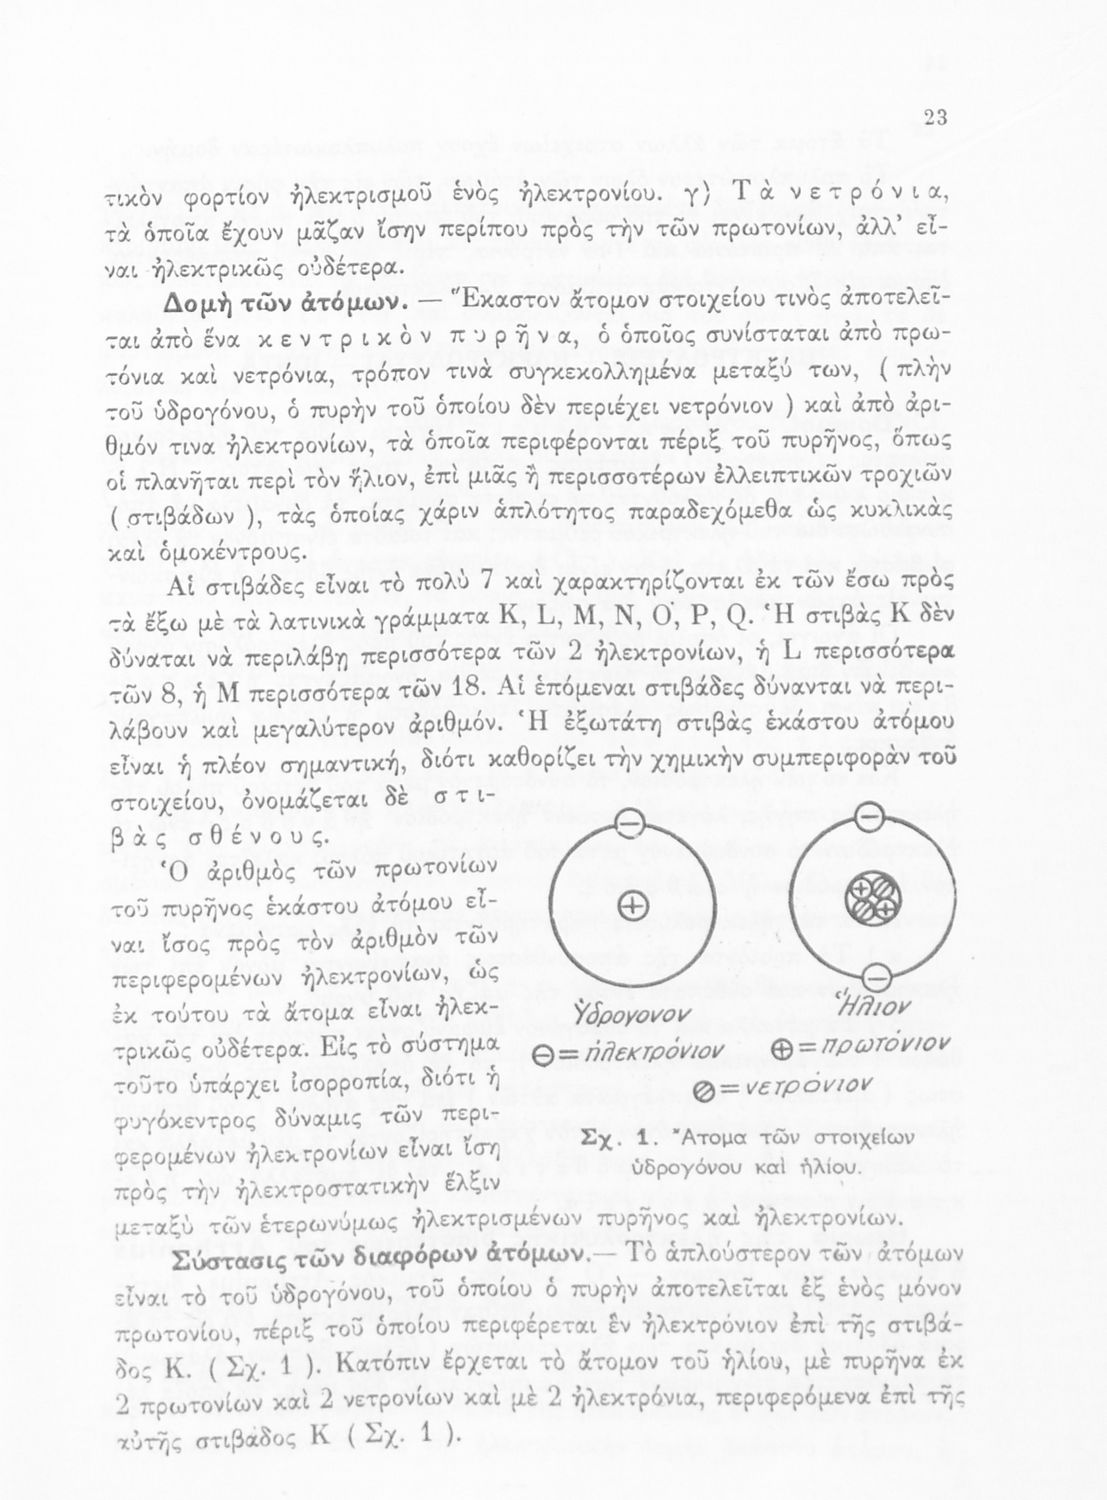 23
τικὸν φορτίον ἠλεκτρισμοῦ ἑνὸς ἠλεκτρονίου. γ) Τὰ νετρόνια,
τὰ ὁποῖα ἔχουν μᾶζαν ἴσην περίπου πρὸς τὴν τῶν πρωτονίων, ἀλλ’ εἶ-
ναι ἠλεκτρικῶς οὐδέτερα.
Δομὴ τῶν ἀτόμων. — Ἕκαστον ἄτομον στοιχείου τινὸς ἀποτελεῖ-
ται ἀπὸ ἕνα κεντρικὸν πυρῆνα, ὁ ὁποῖος συνίσταται ἀπὸ πρω-
τόνια καὶ νετρόνια, τρόπον τινὰ συγκεκολλημένα μεταξύ των, ( πλὴν
τοῦ ὑδρογόνου, ὁ πυρὴν τοῦ ὁποίου δὲν περιέχει νετρόνιον ) καὶ ἀπὸ ἀρι-
θμόν τινα ἠλεκτρονίων, τὰ ὁποῖα περιφέρονται πέριξ τοῦ πυρῆνος, ὅπως
οἱ πλανῆται περὶ τὸν ἥλιον, ἐπὶ μιᾶς ἢ περισσοτέρων ἐλλειπτικῶν τροχιῶν
( στιβάδων ), τὰς ὁποίας χάριν ἁπλότητος παραδεχόμεθα ὡς κυκλικὰς
καὶ ὁμοκέντρους.
Αἱ στιβάδες εἶναι τὸ πολὺ 7 καὶ χαρακτηρίζονται ἐκ τῶν ἔσω πρὸς
τὰ ἔξω μὲ τὰ λατινικὰ γράμματα K, L, M, N, O, P, Q. Ἡ στιβὰς K δὲν
δύναται νὰ περιλάβῃ περισσότερα τῶν 2 ἠλεκτρονίων, ἡ L περισσότερα
τῶν 8, ἡ M περισσότερα τῶν 18. Αἱ ἑπόμεναι στιβάδες δύνανται νὰ περι-
λάβουν καὶ μεγαλύτερον ἀριθμόν. Ἡ ἐξωτάτη στιβὰς ἑκάστου ἀτόμου
εἶναι ἡ πλέον σημαντική, διότι καθορίζει τὴν χημικὴν συμπεριφορὰν τοῦ
στοιχείου, ὀνομάζεται δὲ στι-
βὰς σθένους.
Ὁ ἀριθμὸς τῶν πρωτονίων
τοῦ πυρῆνος ἑκάστου ἀτόμου εἶ-
ναι ἴσος πρὸς τὸν ἀριθμὸν τῶν
περιφερομένων ἠλεκτρονίων, ὡς
ἐκ τούτου τὰ ἄτομα εἶναι ἠλεκ-
τρικῶς οὐδέτερα. Εἰς τὸ σύστημα
τοῦτο ὑπάρχει ἰσορροπία, διότι ἡ
φυγόκεντρος δύναμις τῶν περι-
φερομένων ἠλεκτρονίων εἶναι ἴση
πρὸς τὴν ἠλεκτροστατικὴν ἕλξιν
μεταξὺ τῶν ἑτερωνύμως ἠλεκτρισμένων πυρῆνος καὶ ἠλεκτρονίων.
Ὑδρογονον
Ἥλιον
⊖ = ἠλεκτρόνιον
⊕ = πρωτόνιον
⊘ = νετρόνιον
Σχ. 1. Ἄτομα τῶν στοιχείων
ὑδρογόνου καὶ ἡλίου.
Σύστασις τῶν διαφόρων ἀτόμων.— Τὸ ἁπλούστερον τῶν ἀτόμων
εἶναι τὸ τοῦ ὑδρογόνου, τοῦ ὁποίου ὁ πυρὴν ἀποτελεῖται ἐξ ἑνὸς μόνον
πρωτονίου, πέριξ τοῦ ὁποίου περιφέρεται ἓν ἠλεκτρόνιον ἐπὶ τῆς στιβά-
δος K. ( Σχ. 1 ). Κατόπιν ἔρχεται τὸ ἄτομον τοῦ ἡλίου, μὲ πυρῆνα ἐκ
2 πρωτονίων καὶ 2 νετρονίων καὶ μὲ 2 ἠλεκτρόνια, περιφερόμενα ἐπὶ τῆς
αὐτῆς στιβάδος K ( Σχ. 1 ).